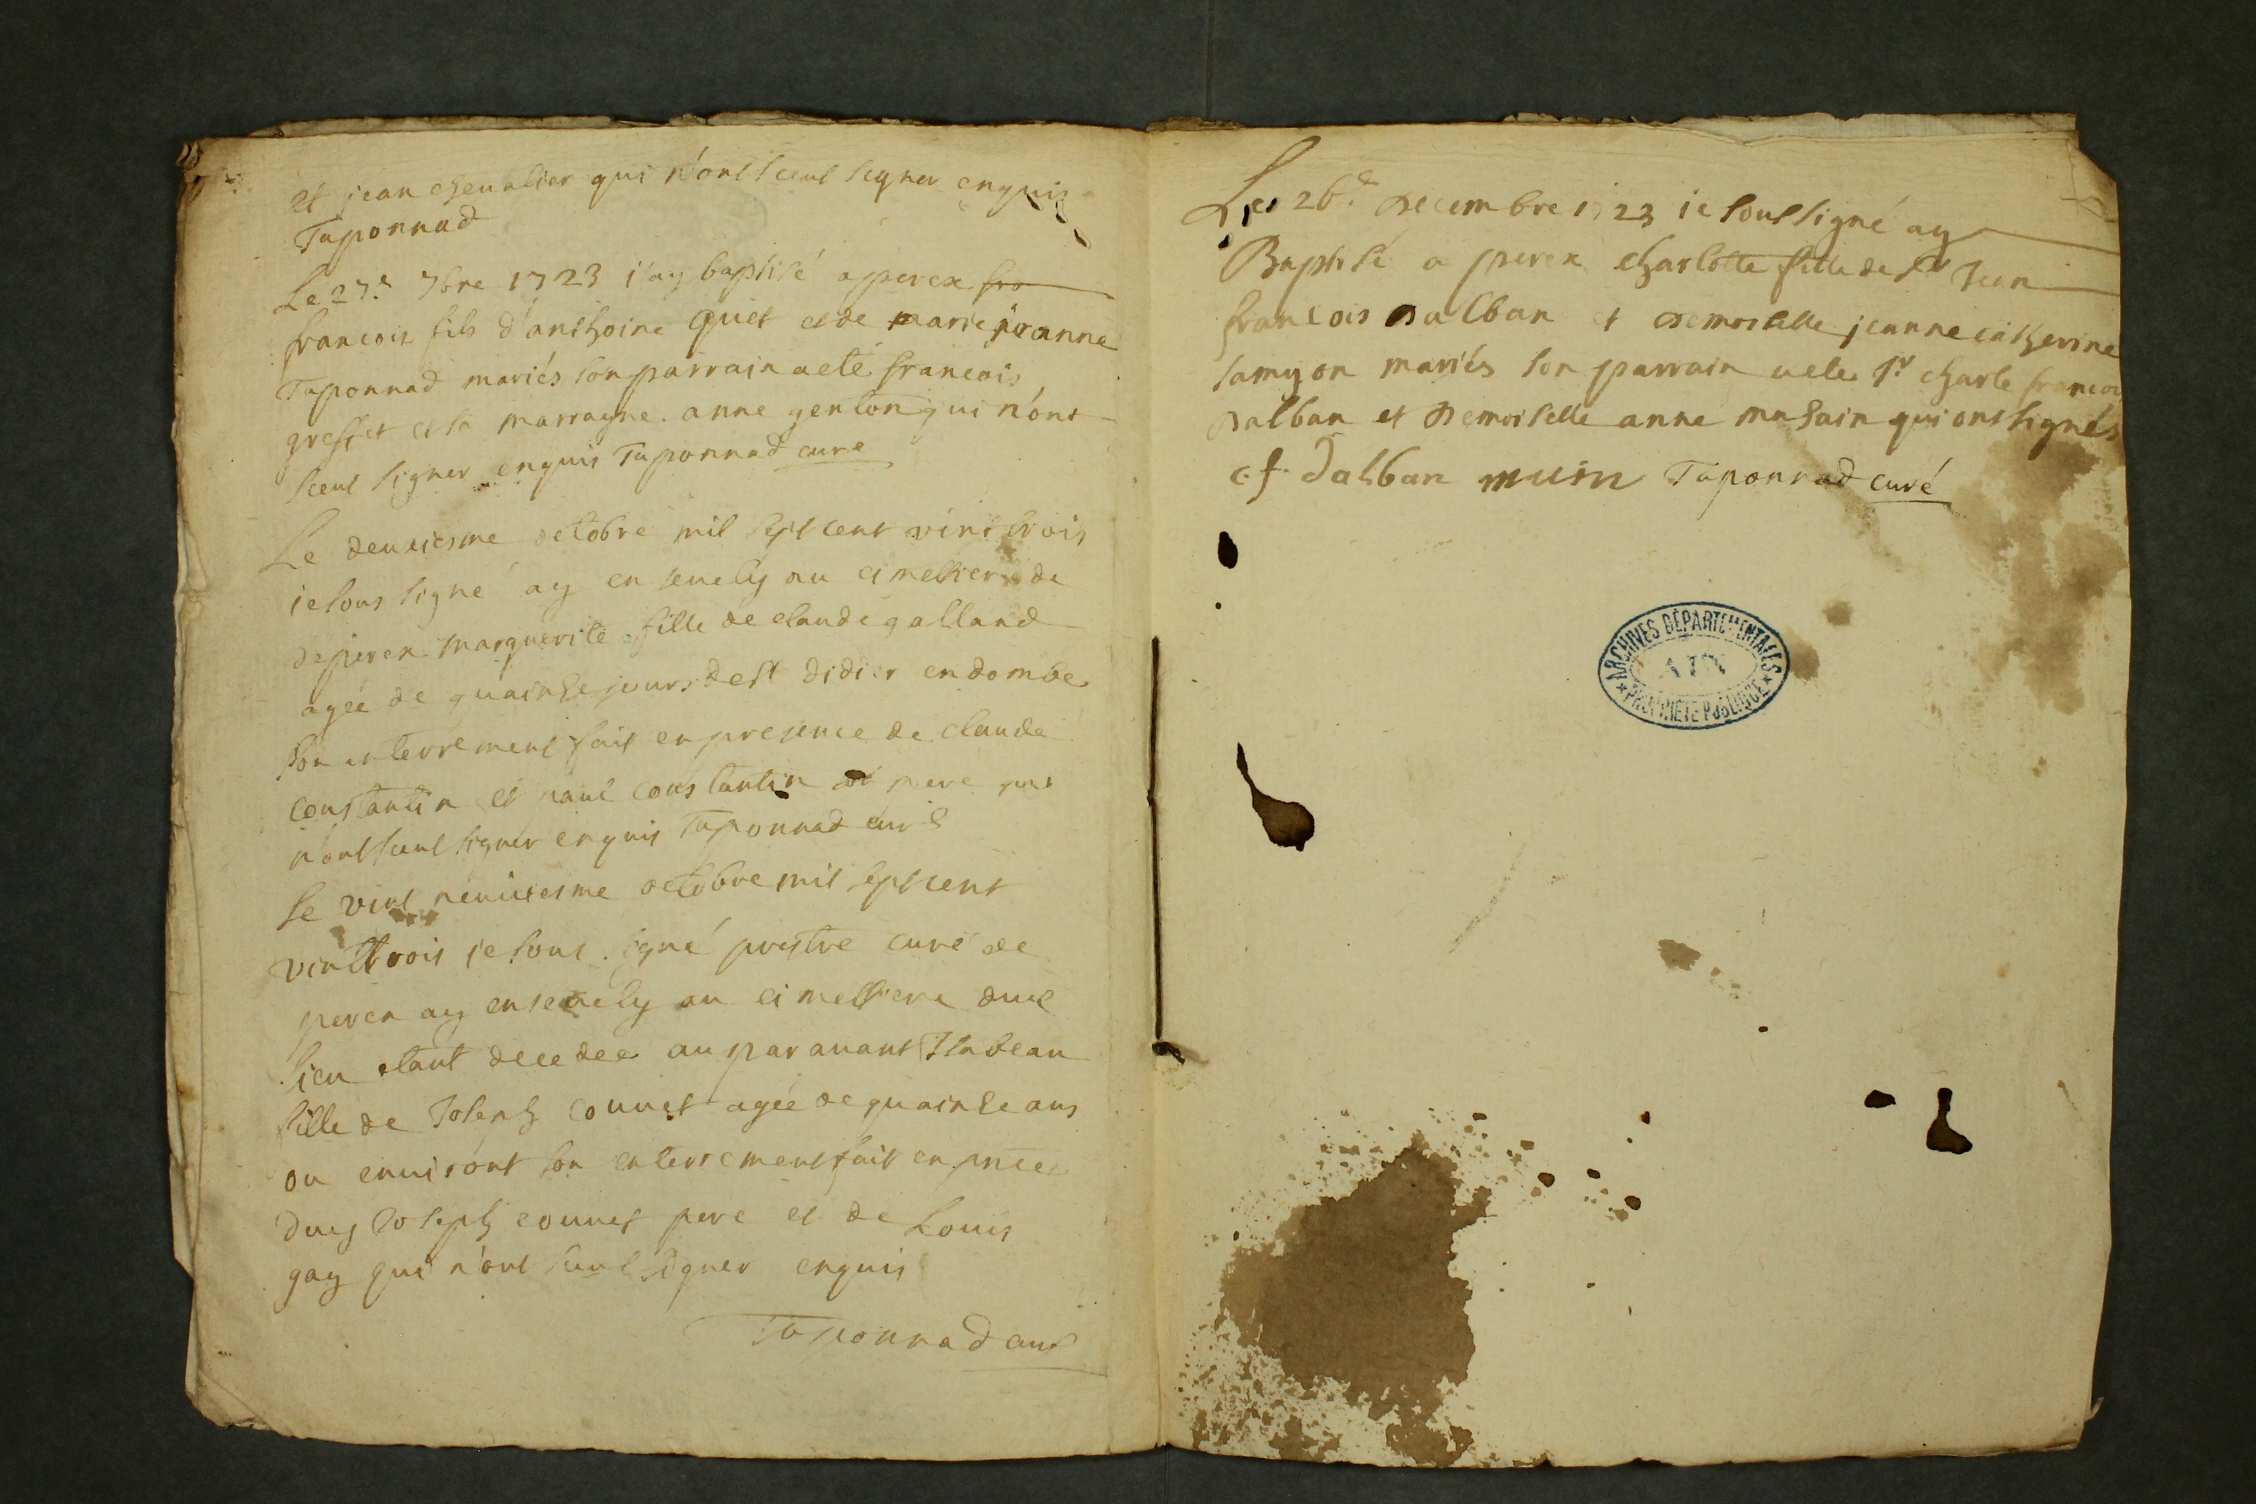 et jean chevalier qui n'ont sceut signer enquis
Taponnad
Le 27.e 7bre 1723 j'ay baptisé a perex fra
francois fils d'anthoine quet et de marie jeanne
Taponnad mariés son parrain a eté francois
greffet et sa marrayne. anne genton qui n'ont
sceut signer enquis Taponnad curé
Le deuxiesme octobre mil sept cent vint trois
je sous signé ay ensevely au cimettiere de
de perex marguerite fille de claude galland
agée de quainze jours de st didier en dombe
son enterrement fait en presence de claude
constantin et paul constantin pere qui
n'ont sceut signer enquis Taponnad curé
Le vint neuviesme octobre mil sept cent
vint trois je sous signé prestre curé de
perex ay ensevely au cimettiere dud
lieu etant decedee auparavant Isabeau
fille de Joseph couvet agée de quainze ans
ou environt son enterrement fait en pnce
dud Joseph couvet pere et de Louis
gay qui n'ont sceut signer enquis
Taponnad curé
Le 26.e decembre 1723 je soussigné ay
Baptisé a perex charlotte fille de sr Jean
francois dalban et demoiselle jeanne catherine
samyon mariés son parrain a ete sr charle francois
dalban et demoiselle anne muhain qui ont signés
c. f. Dalban muin Taponnad curé
ARCHIVES DÉPARTEMENTALES
AIN
PROPRIÉTÉ PUBLIQUE